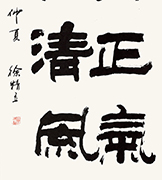 正氣
清風
仲夏 徐